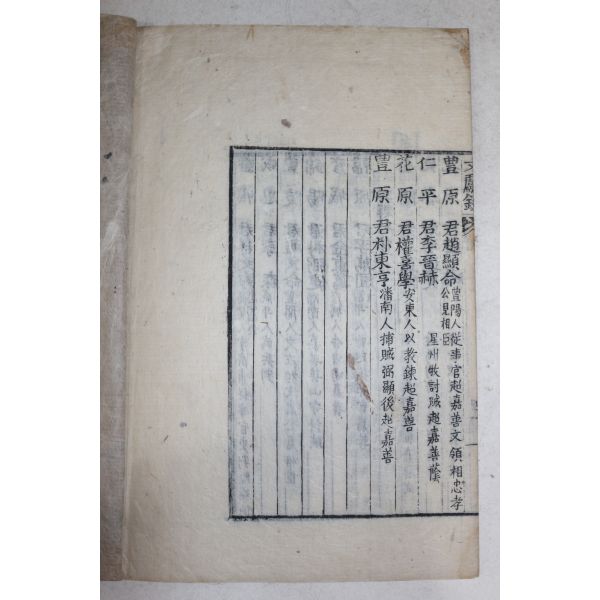 文獻錄
豊原君趙顯命豊陽人從事官超嘉善文領相忠孝公見相臣
仁平君李晉赫星州牧討賊超嘉善蔭
花原君權喜學安東人以教鍊超嘉善
豊原君朴東亨潘南人捕賊弼顯後超嘉善